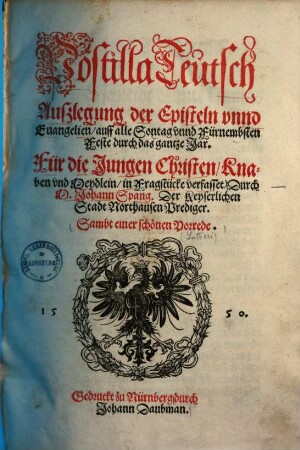 Postilla Teütsch
Auszlegung der Episteln vnnd
Euangelien / auff alle Sontag vnnd Fürnembsten
Feste durch das gantze Jar.
Für die Jungen Christen / Kna-
ben vnd Meydlein / in Fragstücke verfasset / Durch
M. Johann Spang. Der Keyserlichen
Stadt Northausen Prediger.
Sambt einer schönen Vorrede.
15 50.
Gedruckt zu Nürnberg durch
Johann Daubman.